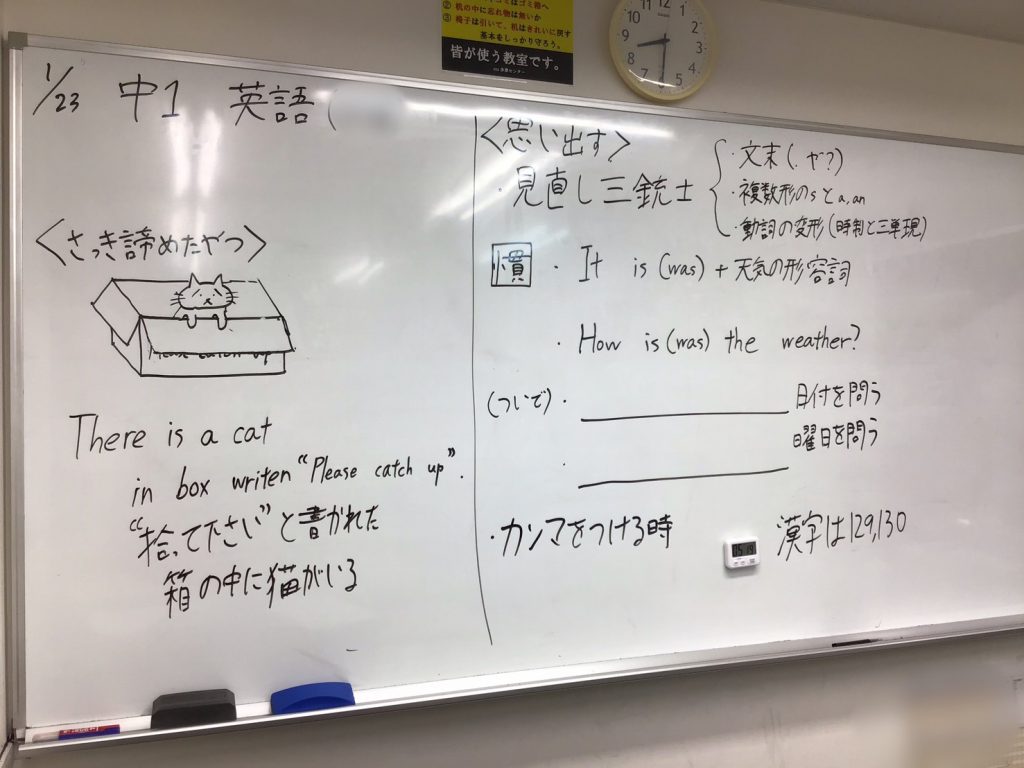 ゴミはゴミ箱へ
② 机の中に忘れ物は無いか
③ 椅子は引いて、机はきれいに戻す
基本をしっかり守ろう。
皆が使う教室です。
12
11
10
9
8
1
2
3
4
5
1/23 中1 英語 (
<さっき諦めたやつ>
Please catch up
There is a cat
in box writen "Please catch up".
"拾って下さい"と書かれた
箱の中に猫がいる
<思い出す>
・見直し三銃士
・文末(. や?)
・複数形のsとa,an
・動詞の変形(時制と三単現)
慣 ・It is (was) + 天気の形容詞
・How is (was) the weather?
(ついで)・ 日付を問う
・ 曜日を問う
・カンマをつける時
漢字は129,130